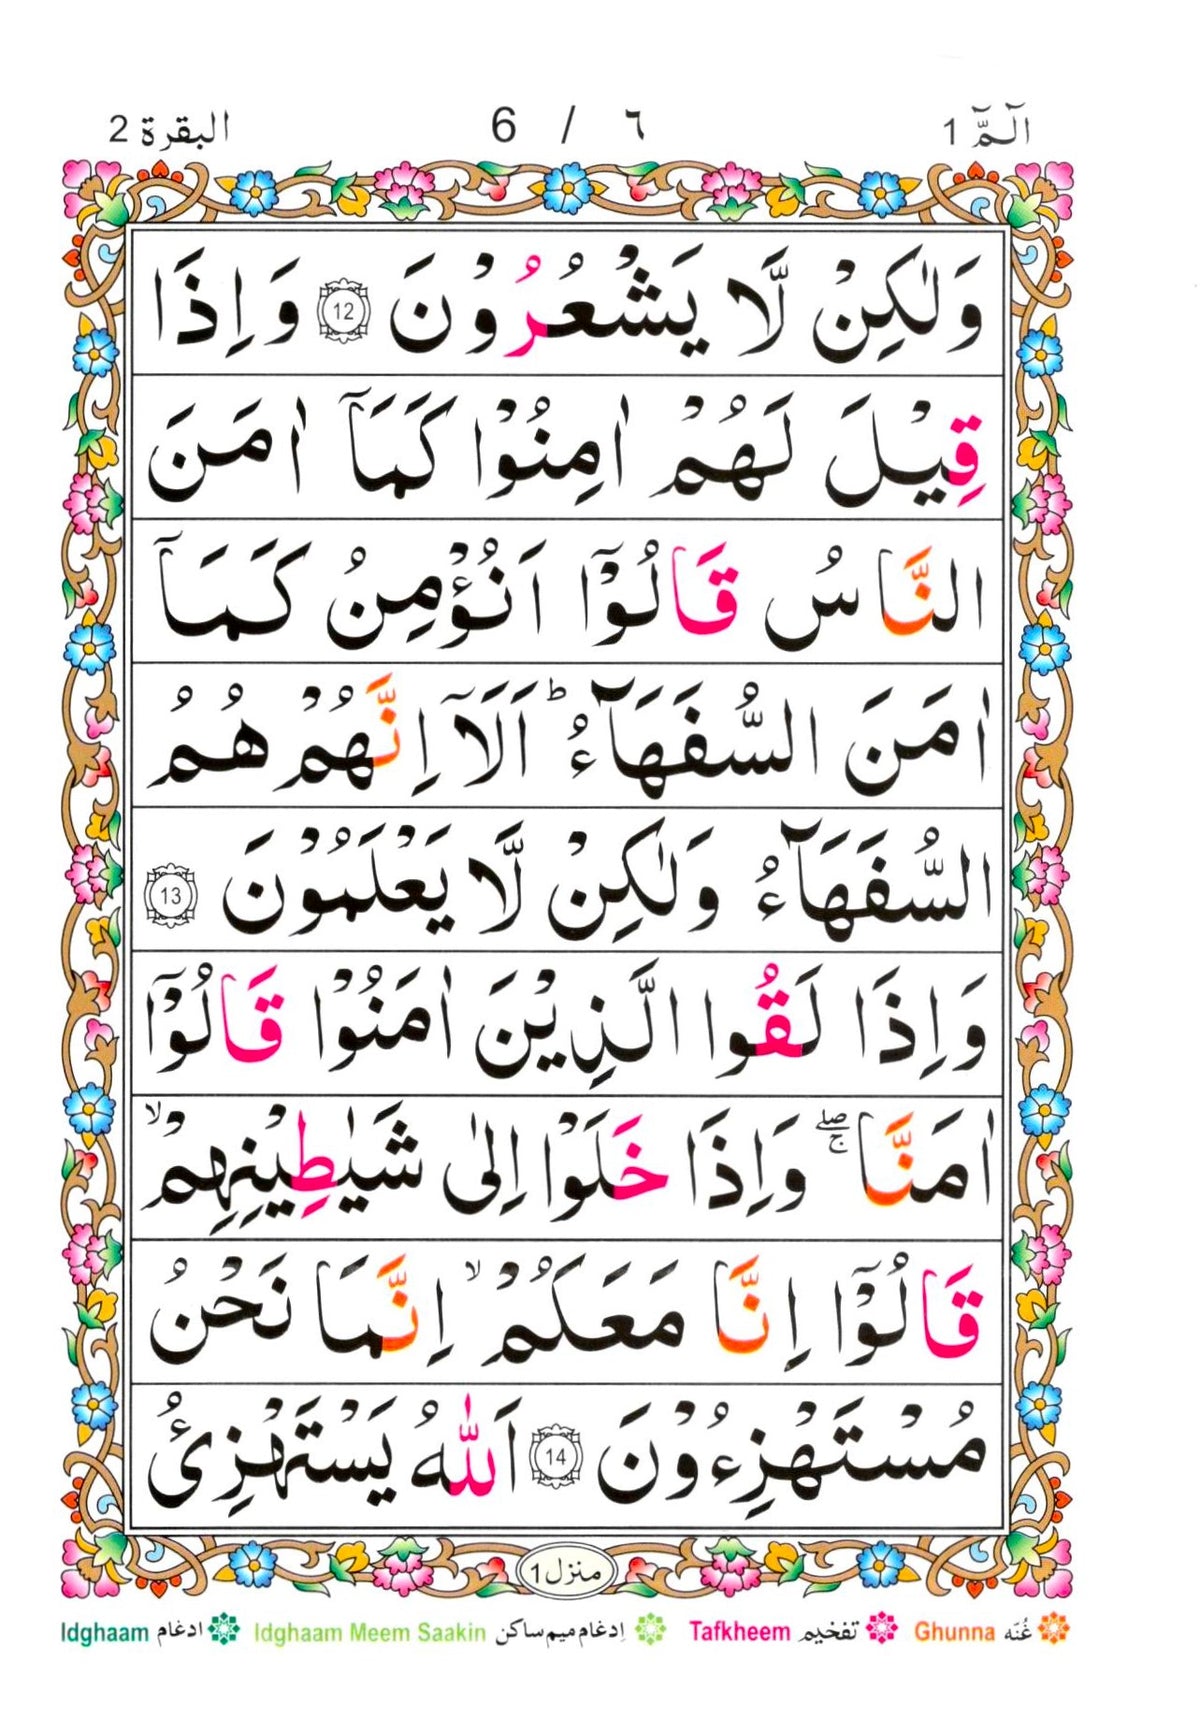 الٓـمّٓ 1
6 / ٦
البقرة 2
وَلٰكِنْ لَّا يَشْعُرُوْنَ 12 وَاِذَا
قِيْلَ لَهُمْ اٰمِنُوْا كَمَاۤ اٰمَنَ
النَّاسُ قَالُوْۤا اَنُؤْمِنُ كَمَاۤ
اٰمَنَ السُّفَهَآءُ ؕ اَلَاۤ اِنَّهُمْ هُمُ
السُّفَهَآءُ وَلٰكِنْ لَّا يَعْلَمُوْنَ 13
وَاِذَا لَقُوا الَّذِيْنَ اٰمَنُوْا قَالُوْۤا
اٰمَنَّا ۖۚ وَاِذَا خَلَوْا اِلٰى شَيٰطِيْنِهِمْ ۙ
قَالُوْۤا اِنَّا مَعَكُمْ ۙ اِنَّمَا نَحْنُ
مُسْتَهْزِءُوْنَ 14 اَللّٰهُ يَسْتَهْزِئُ
منزل 1
Ghunna غُنّه Tafkheem تفخيم Idghaam Meem Saakin إدغام ميم ساكن Idghaam ادغام